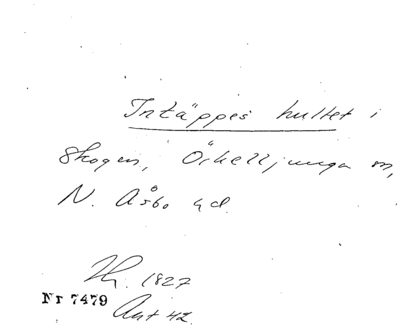 Intäppes hultet i
Skogen, Örkelljunga sn,
N. Åsbo hd.
Th. 1827
Nr 7479
Ant 42